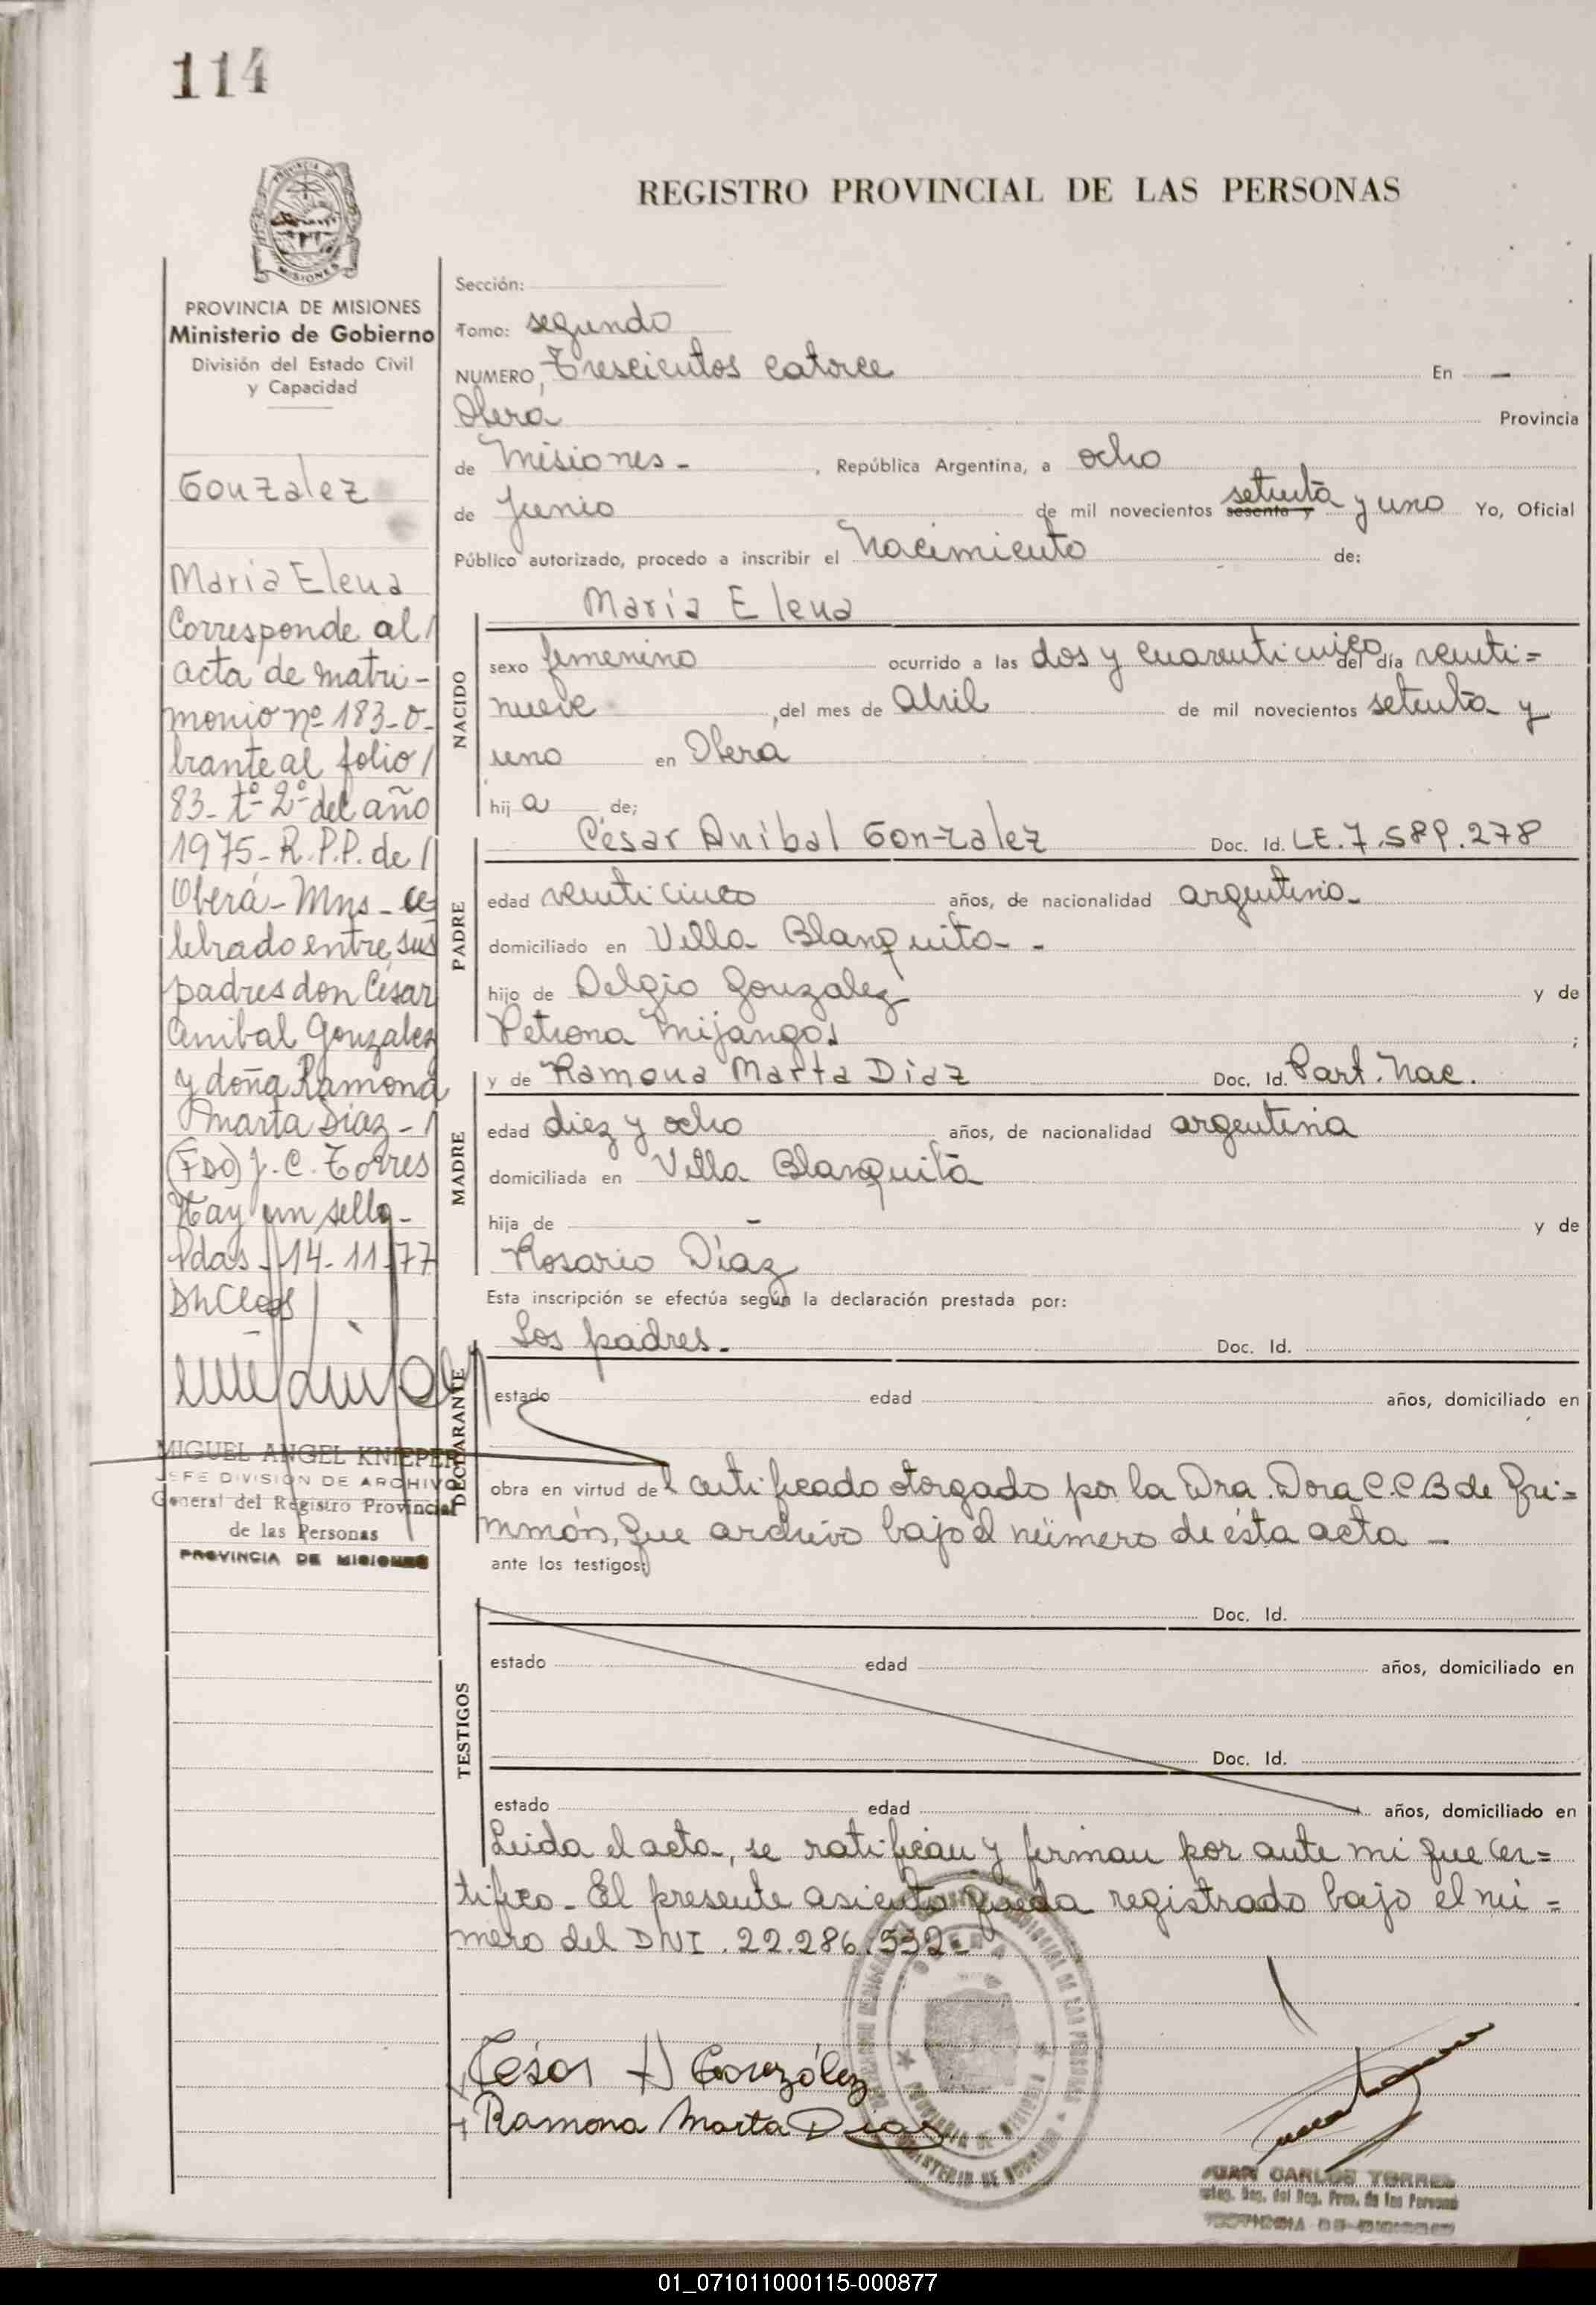 114
PROVINCIA DE MISIONES
MISIONES
PROVINCIA DE MISIONES
Ministerio de Gobierno
División del Estado Civil
y Capacidad
Gonzalez
Maria Elena
Corresponde al/
acta de matri-
monio nº 183-o-
brante al folio/
83-tº-2º del año
1975-R.P.P. de/
Oberá-Mns-ce
lebrado entre sus
padres don César
Anibal Gonzalez
y doña Ramona
Marta Diaz-/
(FDO) J. C. Torres
Hay un sello-
Pdas-14-11-77
MIGUEL ANGEL KNIEPER
JEFE DIVISION DE ARCHIVO
General del Registro Provincial
de las Personas
PROVINCIA DE MISIONES
REGISTRO PROVINCIAL DE LAS PERSONAS
Sección:
Tomo: segundo
NUMERO, Trescientos catorce En -
Oberá Provincia
de Misiones- , República Argentina, a ocho
de Junio de mil novecientos sesenta y setenta y uno Yo, Oficial
Público autorizado, procedo a inscribir el Nacimiento de:
María Elena
NACIDO
sexo femenino ocurrido a las dos y cuarenticinco del día veinti=
nueve ,del mes de Abril de mil novecientos setenta y
uno en Oberá
hij a de;
César Aníbal Gonzalez Doc. Id. LE.7.589.278
PADRE
edad veinticinco años, de nacionalidad argentina-
domiciliado en Villa Blanquita--
hijo de Delgio Gonzalez y de
Petrona Mijangos ;
y de Ramona Marta Diaz Doc. Id. Part. Nac.
MADRE
edad diez y ocho años, de nacionalidad argentina
domiciliada en Villa Blanquita
hija de - y de
Rosario Diaz
Esta inscripción se efectúa según la declaración prestada por:
Los padres- Doc. Id.
DECLARANTE
estado edad años, domiciliado en
obra en virtud del certificado otorgado por la Dra. Dora C.C.B de Gri=
mmón, que archivo bajo el número de ésta acta -
ante los testigos;
Doc. Id.
TESTIGOS
estado edad años, domiciliado en
Doc. Id.
estado edad años, domiciliado en
Leida el acta, se ratifican y firman por ante mi que cer=
tifico-El presente asiento queda registrado bajo el nú=
mero del DNI. 22.286.532-
César A González
Ramona Marta Diaz
JUAN CARLOS TORRES
del Reg. Prov. de las Personas
PROVINCIA DE MISIONES
01_071011000115-000877